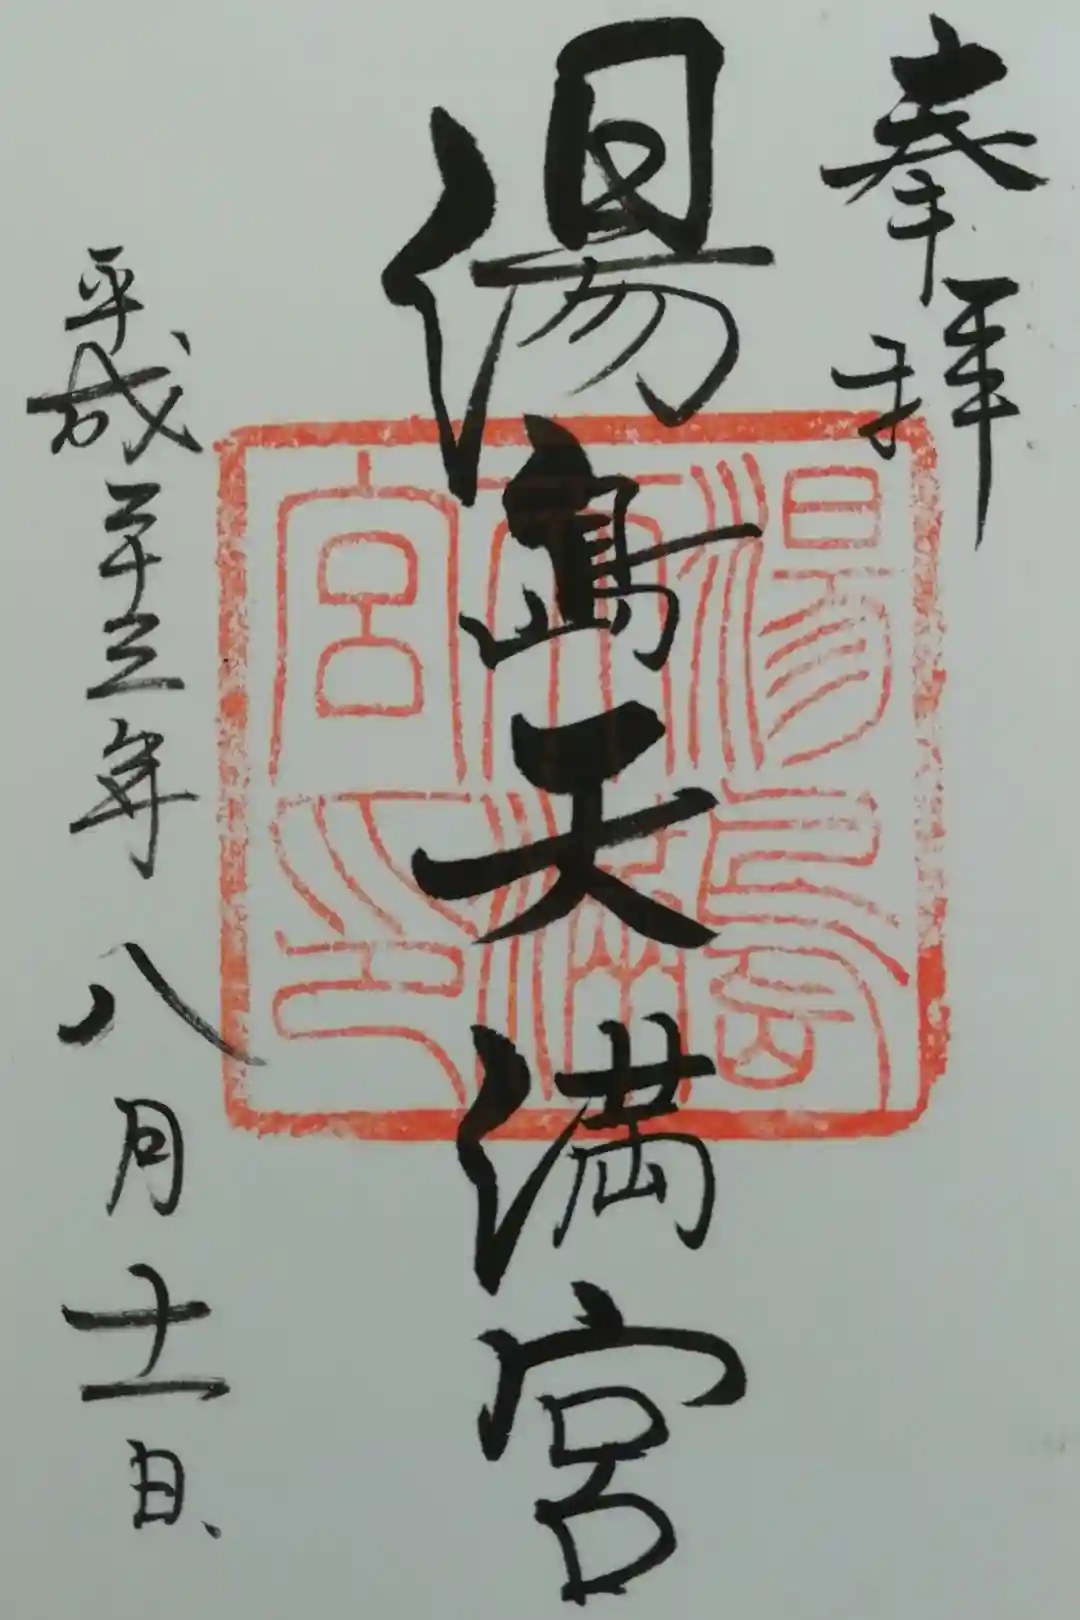 奉拝
湯島天満宮
平成二十三年八月十一日
湯島
天満
宮印